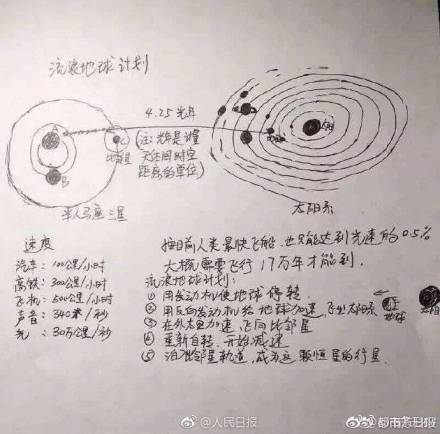 流浪地球计划
4.25光年
(注:光年是计量
天体间时空
距离的单位)
A
B
C
太阳
半人马座三星
太阳系
速度
汽车:100公里/小时
高铁:300公里/小时
飞机:500公里/小时
声音:340米/秒
光:30万公里/秒
按目前人类最快飞船,也只能达到光速的0.5%
大概需要飞行17万年才能到.
流浪地球计划:
① 用发动机使地球停转.
② 用反向发动机给地球加速 飞出太阳系
③ 在外太空加速,飞向比邻星
④ 重新自转,开始减速
⑤ 泊入比邻星轨道,成为这颗恒星的行星.
地球
@人民日报